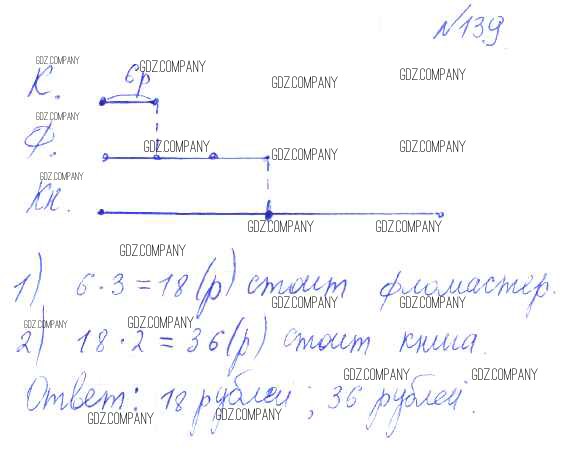 №139
GDZ.COMPANY
К. 6р GDZ.COMPANY GDZ.COMPANY GDZ.COMPANY
GDZ.COMPANY
Ф. GDZ.COMPANY GDZ.COMPANY GDZ.COMPANY
GDZ.COMPANY
Кн.
GDZ.COMPANY GDZ.COMPANY
GDZ.COMPANY
1) 6·3=18(р) стоит фломастер.
GDZ.COMPANY GDZ.COMPANY
GDZ.COMPANY GDZ.COMPANY
2) 18·2=36(р) стоит книга.
GDZ.COMPANY GDZ.COMPANY
Ответ: 18 рублей; 36 рублей.
GDZ.COMPANY GDZ.COMPANY